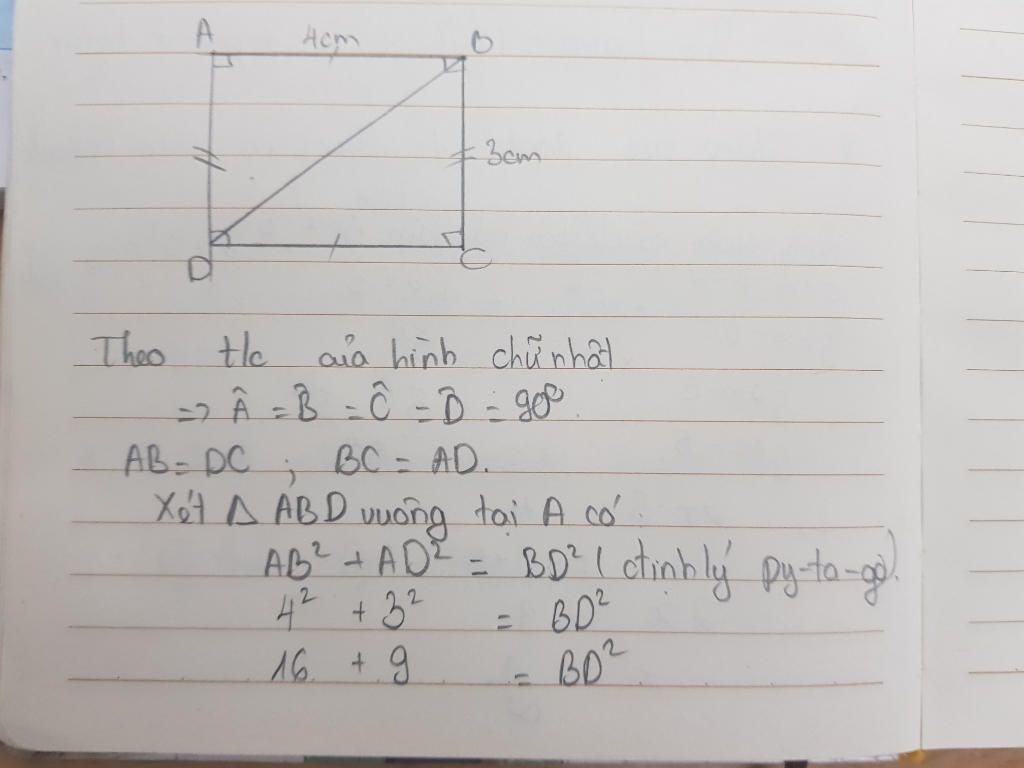 A 4cm B
3cm
D C
Theo t/c của hình chữ nhật
=> Â = B̂ = Ĉ = D̂ = 90°.
AB = DC ; BC = AD.
Xét Δ ABD vuông tại A có
AB² + AD² = BD² (định lý py-ta-go).
4² + 3² = BD²
16 + 9 = BD²